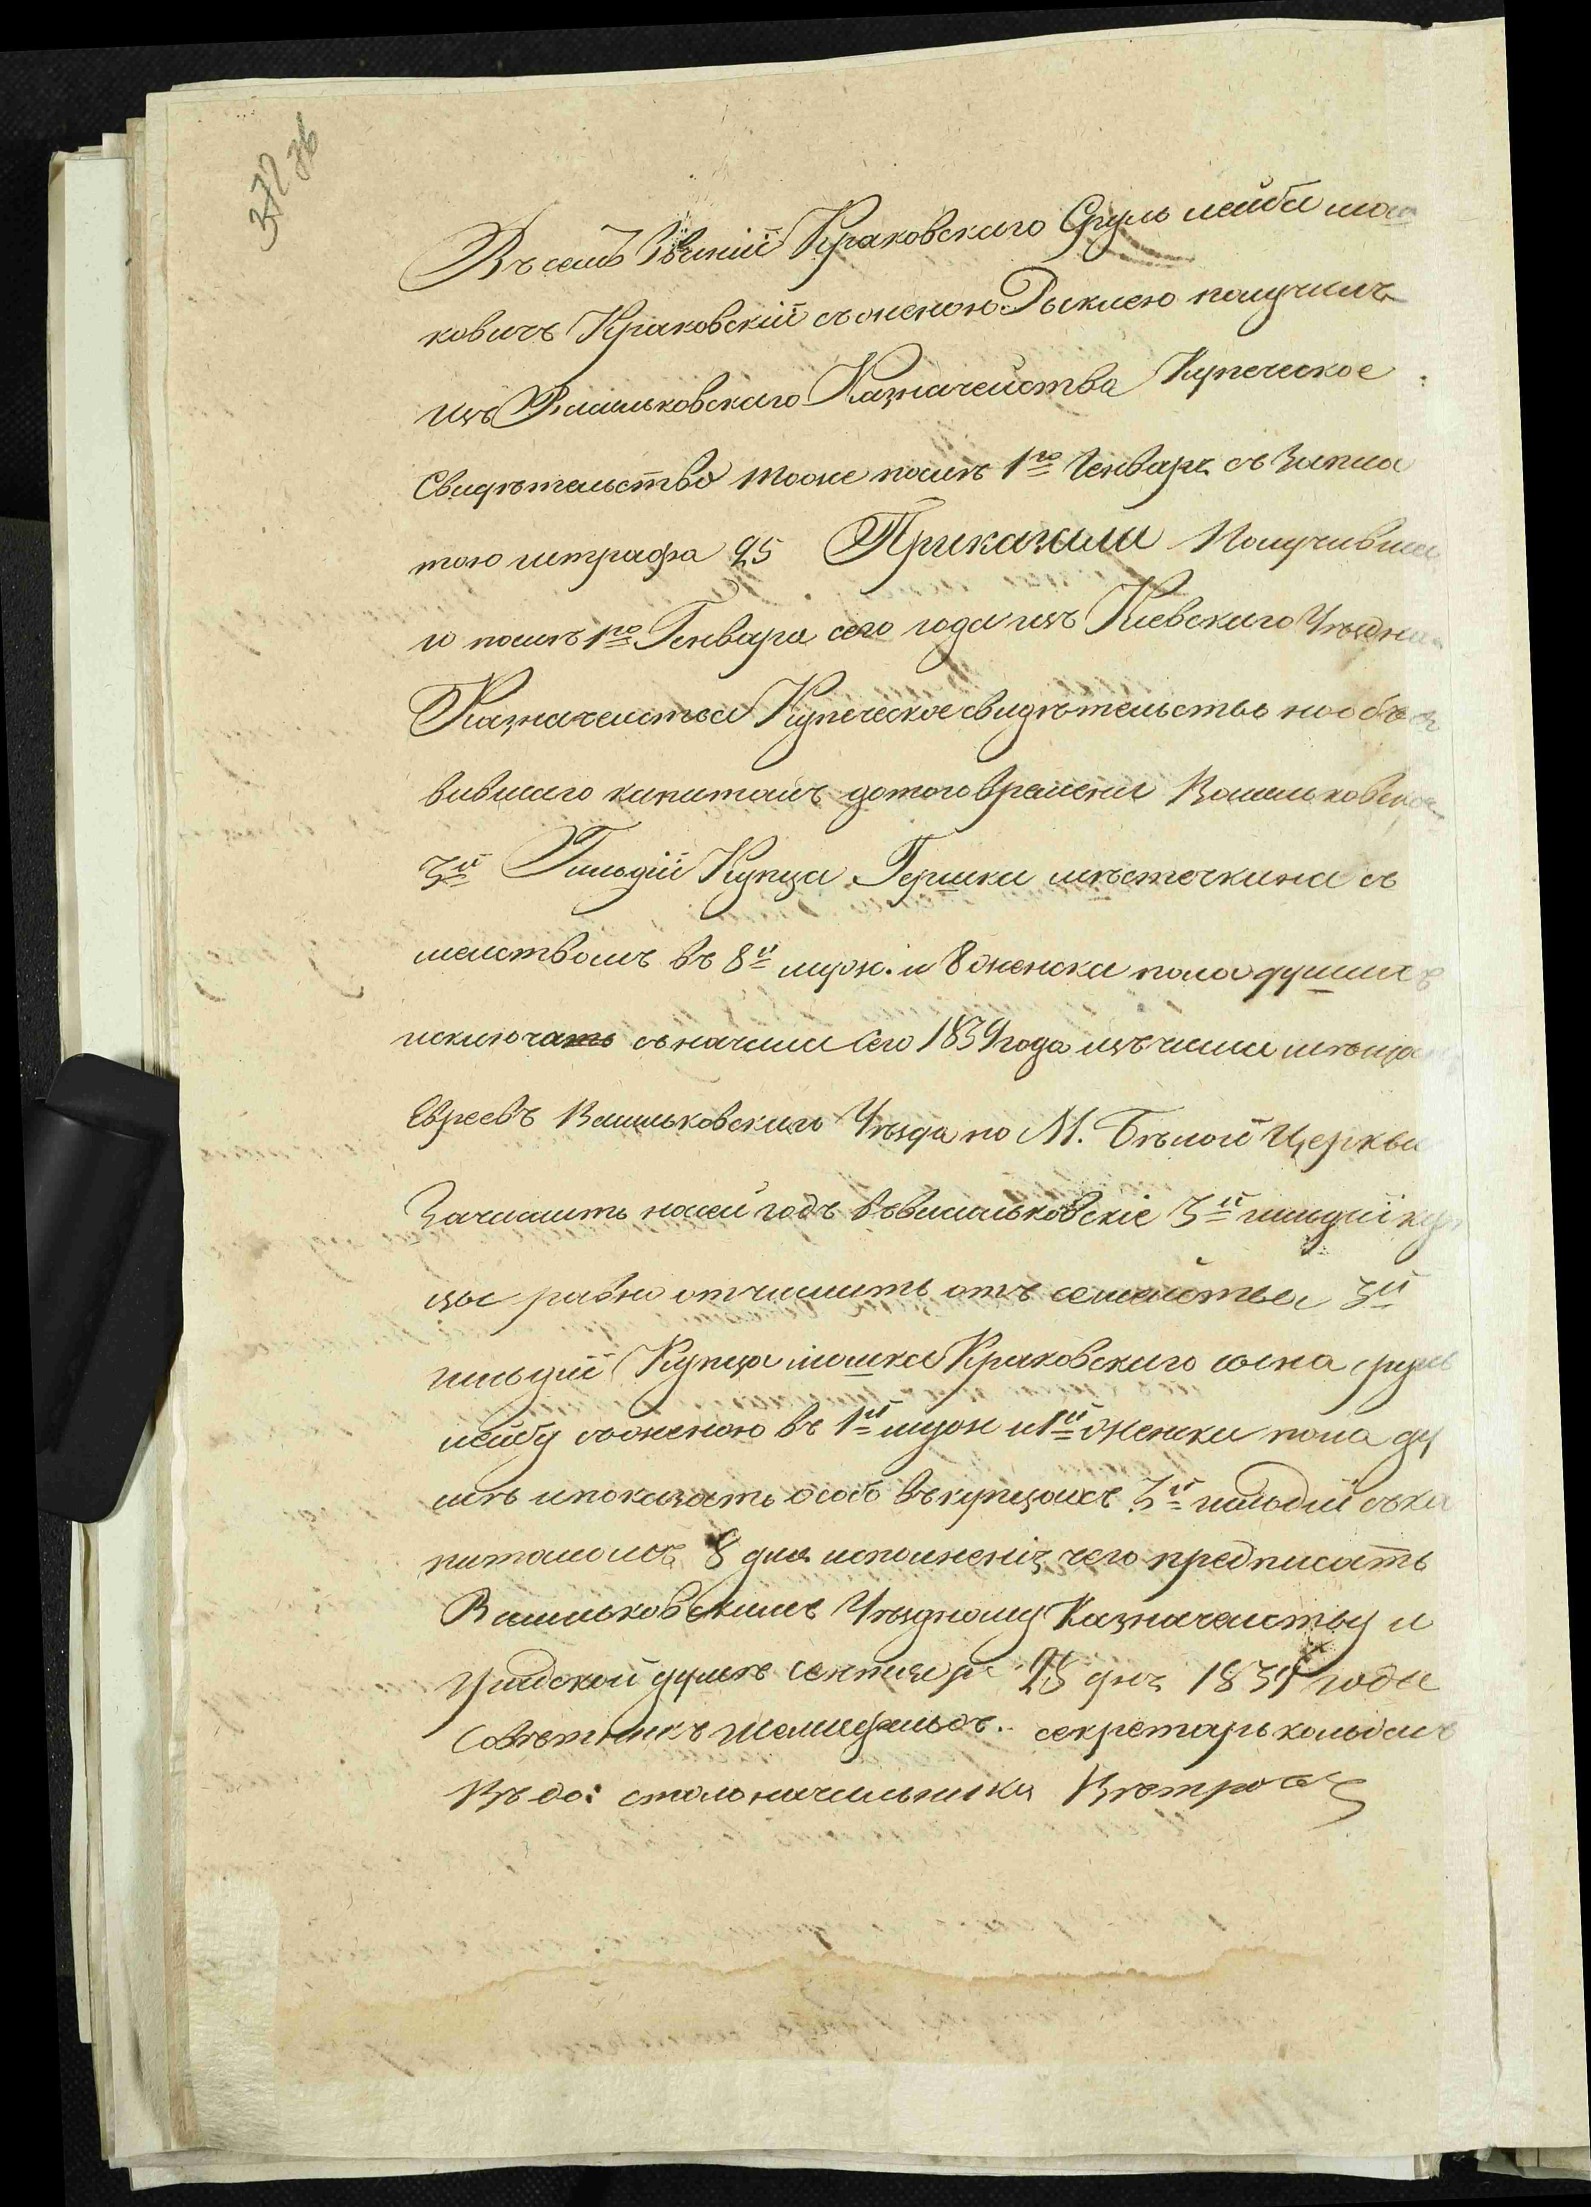 372 36
Въ семъ Краковскаго Сруль лейба мош
ковичъ Краковскій съ женою Рыклею получилъ
изъ Васильковскаго Казначейства Купеческое
Свидѣтельство тоже послѣ 1го Генваря съ запла
тою штрафа 25 Приказали Получивша
го послѣ 1го Генваря сего года изъ Кіевскаго Уѣздна
Казначейства Купеческое свидѣтельство но объя
вившаго капиталъ до того времени Васильковска
3й Гильдіи Купца Гершка мѣстечкина съ
мействомъ въ 8й муж. и 8 женска пола душахъ
исключать съ начала Сего 1834 года изъ числа мѣщан
Евреевъ Васильковскаго Уѣзда по М. Бѣлой Церкви
Зачислить на сей годъ въ васильковскіе 3й гильдіи куп
цы равно отчислить отъ семейства 3й
гильдіи Купца мошка Краковскаго сына сруль
лейбу съ женою въ 1й муж и 1й женска пола ду
шѣ и показать особо въ купцахъ 3й гильдіи съ ка
питаломъ 8 для исполненія чего предписать
Васильковскимъ Уѣздному Казначейству и
Градской думѣ сентября 25 дня 1834 года
Совѣтникъ секретарь
Въ до: столоначальника